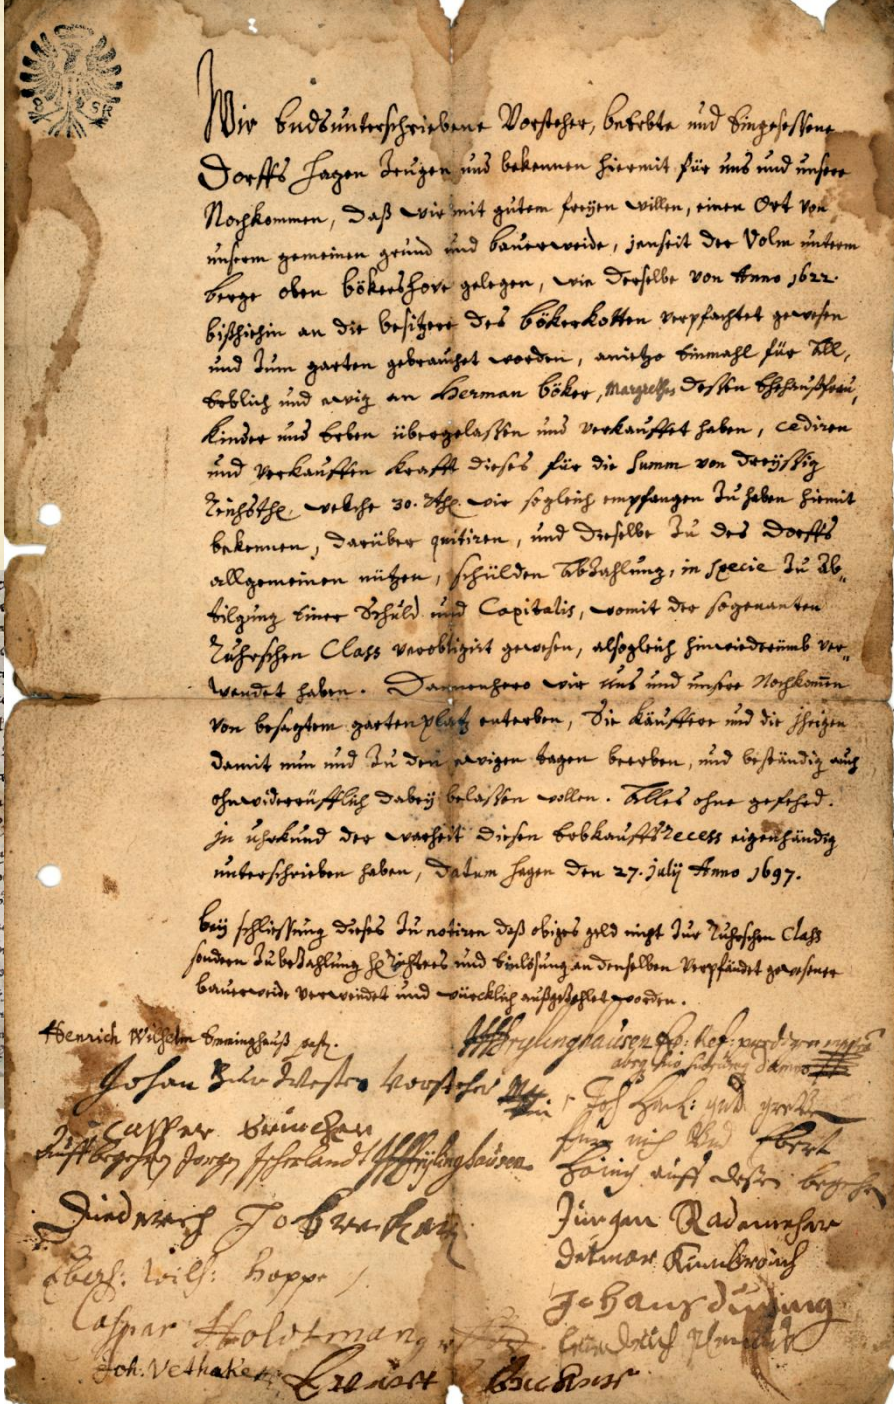 Wir Endsunterschriebene Vorsteher, beErbte und Eingesessene
Dorffs Hagen Zeugen und bekennen hiermit für uns und unsere
Nachkommen, daß wir mit gutem freyen willen, einen Ort von
unserm gemeinen grund und bauerweide, jenseit der Volm unterm
berge oben bökershove gelegen, wie derselbe von Anno 1622.
bißhiehin an die besitzere des bökerkotten verpfachtet gewesen
und zum garten gebrauchet worden, anietzo Einmahl für All,
Erblich und ewig an Herman böker, Margrethe dessen Ehehaußfrau,
Kinder und Erben übergelaßen und verkauffet haben, cediren
und verkauffen krafft dieses für die summ von dreyssig
Reichsthl. welche 30. Rthl. wir sogleich empfangen zu haben hiemit
bekennen, darüber quitiren, und dieselbe zu des Dorffs
allgemeinen nützen, schülden Abzahlung, in specie zu Ab-
tilgung einer Schuld und Capitalis, womit der sogenanten
Ruhrschen Class verobligirt gewesen, alsogleich hinwiederümb ver-
wendet haben. Dannenhero wir uns und unsere Nachkomen
von besagtem gartenplatz enterben, Die Käuffere und die jhrigen
damit nun und zu den ewigen tagen beerben, und beständig auch
ohnwiderrüfflich dabey belaßen wollen. Alles ohne gefehrd.
In uhrkund der warheit diesen ErbkauffsRecess eigenhändig
unterschrieben haben, Datum Hagen den 27. julij Anno 1697.
bey schliessung dieses zu notiren daß obiges geld nicht zur Ruhrschen Class
sondern zu beZahlung H. Richters und Einlösung an denselben verpfändet gewesener
bauerweide verwendet und würcklich außgezahlet worden.
Henrich Wilhelm Emminghauß
Frylinghausen
Johan Zur Westen Vorsteher
Casper
Auff begehren Jorgen Frylinghausen
auff desen begehren
Diederich
Jürgen Rademacher
Eberh: Wilh: Hoppe
Detmar
Johans
Caspar Holtman
Joh. Vethake